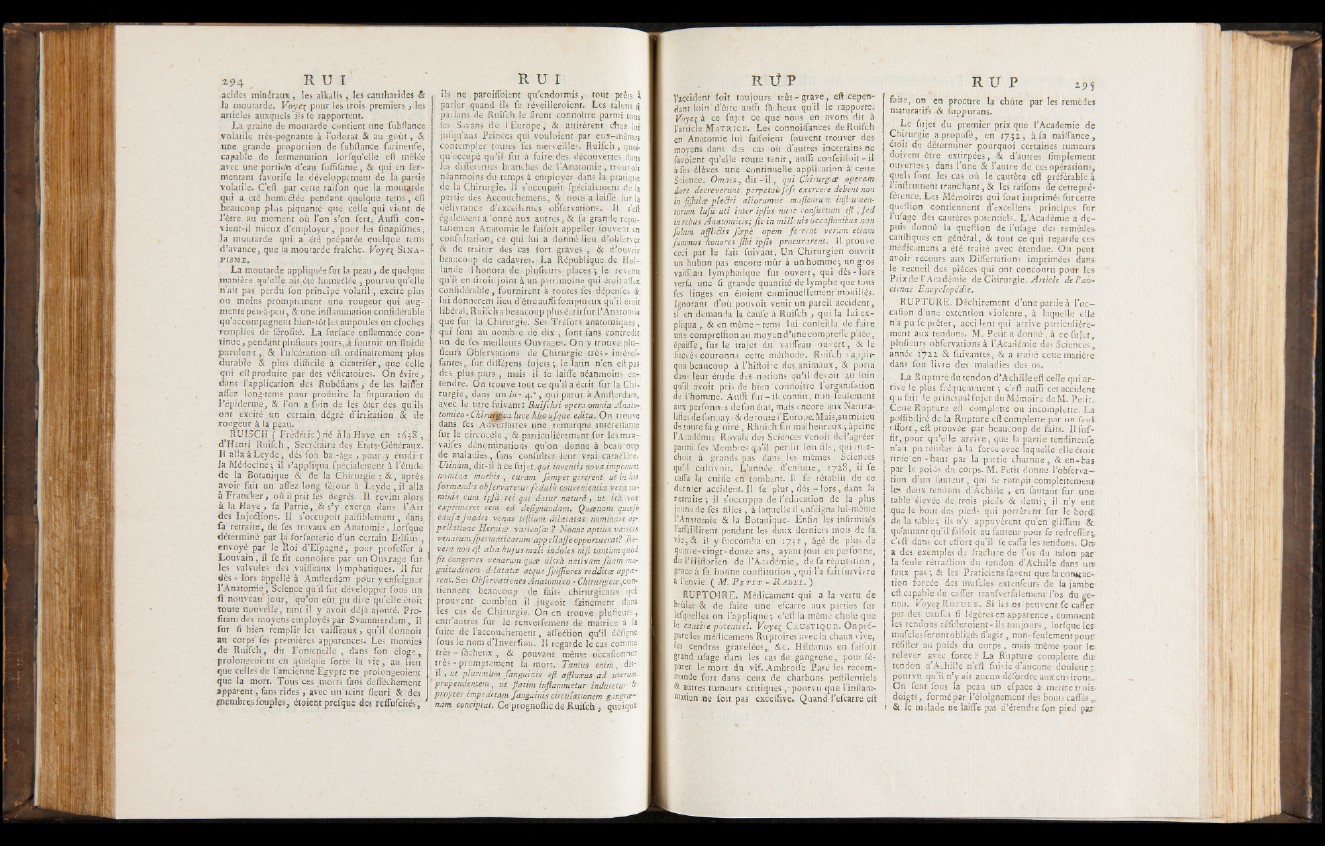 294 RUI
acides minéraux, les alkalis, les cantharides &
la moutarde. Voyez pour les trois premiers, les
articles auxquels ils se rapportent.
La graine de moutarde contient une substance
volatile très-poignante à l'odorat & au goût, &
une grande proportion de substance farineuse,
capable de fermentation lorsqu'elle est mêlée
avec une portion d'eau suffisante, & qui en fer-
mentant favorise le développement de la partie
volatile. C'est par cette raison que la moutarde
qui a été humectée pendant quelque tems, est
beaucoup plus piquante que celle qui vient de
l'être au moment où l'on s'en sert. Aussi con-
vient-il mieux d'employer, pour les sinapismes,
la moutarde qui a été préparée quelque tems
d'avance, que la moutarde fraîche. Voyez SINA-
PISME.
La moutarde appliquée sur la peau, de quelque
manière qu'elle ait été humectée, pourvu qu'elle
n'ait pas perdu son principe volatil, excite plus
ou moins promptement une rougeur qui aug-
mente peu-à-peu, & une inflammation considérable
qu'accompagnent bien-tôt les ampoules ou cloches
remplies de sérosité. La surface enflammée con-
tinue, pendant plusieurs jours, à fournir un fluide
purulent, & l'ulcération est ordinairement plus
durable & plus difficile à cicatriser, que celle
qui est produite par des vésicatoires. On évite,
dans l'application des Rubéfians, de les laisser
assez long-tems pour produire la supuration de
l'épiderme, & l'on a soin de les ôter dès qu'ils
ont excité un certain dégré d'irritation & de
rougeur à la peau.
RUISCH (Frédéric) né à la Haye en 1638,
d'Henri Ruisch, Secrétaire des Etats-Généraux.
Il alla à Leyde, dès son bas-âge, pour y étudier
la Médecine; il s'appliqua spécialement à l'étude
de la Botanique & de la Chirurgie; &, après
avoir fait un assez long séjour à Leyde, il alla
à Francker, où il prit ses degrés. Il revint alors
à la Haye, sa Patrie, & s'y exerça dans l'Art
des Injections. Il s'occupoit paisiblement, dans
sa retraite, de ses travaux en Anatomie, lorsque
déterminé par la forfanterie d'un certain Bilsius,
envoyé par le Roi d'Espagne, pour professer à
Louvain, il se fit connoître par un Ouvrage sur
les valvules des vaisseaux lymphatiques. Il fut
dès-lors appellé à Amsterdam pour y enseigner
l'Anatomie, Science qu'il sut développer sous un
si nouveau jour, qu'on eût pu dire qu'elle étoit
toute nouvelle, tant il y avoit déjà ajouté. Pro-
fitant des moyens employés par Swammerdam, il
sut si bien remplir les vaisseaux, qu'il donnoit
au corps ses premières apparences. Les momies
de Ruisch, dit Fontenelle, dans son éloge,
prolongeoient en quelque sorte la vie, au lieu
que celles de l'ancienne Egypte ne prolongeoient
que la mort. Tous ces morts sans desséchement
apparent, sans rides, avec un teint fleuri & des
membres souples, étoient presque des ressuscités,
RUI
ils ne paroissoient qu'endormis, tout prêts à
parler quand ils se réveilleroient. Les talens si
parlans de Ruisch le firent connoître parmi tous
les Savans de l'Europe, & attirèrent chez lui
jusqu'aux Princes qui vouloient par eux-mêmes
contempler toutes ses merveilles. Ruisch, quel-
qu'occupé qu'il fût à faire des découvertes dans
les différentes branches de l'Anatomie, trouvoit
néanmoins du temps à employer dans la pratique
de la Chirurgie. Il s'occupoit spécialement de la
partie des Accouchemens, & nous a laissé sur la
délivrance d'excellentes observations. Il s'est
également adonné aux autres, & sa grande répu-
tation en Anatomie le faisoit appeller souvent en
consultation, ce qui lui a donné lieu d'observer
& de traiter des cas fort graves, & d'ouvrir
beaucoup de cadavres. La République de Hol-
lande l'honora de plusieurs places; le revenu
qu'il en tiroit joint à un patrimoine qui étoit assez
considérable, fournirent à toutes ses dépenses &
lui donnerent lieu d'être aussi somptueux qu'il étoit
libéral. Ruisch a beaucoup plus écrit sur l'Anatomie
que sur la Chirurgie. Ses Trésors anatomiques,
qui sont au nombre de dix, sont sans contredit
un de ses meilleurs Ouvrages. On y trouve plu-
sieurs Observations de Chirurgie très-intéres-
santes, sur différens sujets; le latin n'en est pas
des plus purs, mais il se laisse néanmoins en-
tendre. On trouve tout ce qu'il a écrit sur la Chi-
rurgie, dans un in-4.°, qui parut à Amsterdam,
avec le titre suivant: Ruischii opera omnia Anato-
mico-Chirurgica huc usque edita. On trouve
dans ses Adversaires une remarque intéressante
sur le circocele, & particulièrement sur les mau-
vaises dénominations qu'on donne à beaucoup
de maladies, sans consulter leur vrai caractère.
Utinam, dit-il à ce sujet, qui inventis nova imponunt
nomina morbis, curam semper gererent ut in his
formandis observaretur sedulò convenientia vera no-
minis cum ipsâ rei qui datur naturâ, ut ità vox
exprimeret rem ad designandam. Quænam quæso
causa suadet venas testium dilatatas nominare ap-
pellatione Herniæ varicosæ? Nonne aptius varices
venarum spermaticarum appellasse opportuerat? Re-
vera non est alia hujus mali indoles nisi tantùm quod
sit congeries venarum quæ ultrà nativam suam ma-
gnitudinem dilatatæ atque spissiores redditæ appa-
rent. Ses Observationes Anatomico-Chirurgicæ, con-
tiennent beaucoup de faits chirurgicaux qui
prouvent combien il jugeoit sainement dans
les cas de Chirurgie. On en trouve plusieurs,
entr'autres sur le renversement de matrice à la
suite de l'accouchement, affection qu'il désigne
sous le nom d'Inversion. Il regarde le cas comme
très-fâcheux, & pouvant même occasionner
très-promptement la mort. Tantus enim, dit-
il, ut plurimùm sanguinis est affluxus ad uterum
propendentem, ut statim inflammetur induretur &
propter impeditam sanguinis circulationem gangræ-
nam concipiat. Ce prognostic de Ruisch, quoique
RUP
l'accident soit toujours très-grave, est cepen-
dant loin d'être aussi fâcheux qu'il le rapporte.
Voyez à ce sujet ce que nous en avons dit à
l'article MATRICE. Les connoissances de Ruisch
en Anatomie lui faisoient souvent trouver des
moyens dans des cas où d'autres incertains ne
savoient qu'elle route tenir, aussi conseilloit-il
à ses élèves une continuelle application à cette
Science. Omnes, dit-il, qui Chirurgiæ operam
dare decreverunt, perpetuò sese exercere debent non
in fistulæ plectri aliorumve musicorum instrumen-
torum lusu uti inter ipsos nunc consuetum est, sed
in rebus Anatomicis; sic in mille aliis occasionibus non
solum afflictis sæpè opem ferrent verum etiam
summos honores sibi ipsis procurarent. Il prouve
ceci par le fait suivant. Un Chirurgien ouvrit
un bubon pas encore mûr à un homme; un gros
vaisseau lymphatique fut ouvert, qui dès-lors
versa une si grande quantité de lymphe que tous
ses linges en étoient continuellement mouillés.
Ignorant d'où pouvoit venir un pareil accident,
il en demanda la cause à Ruisch, qui la lui ex-
pliqua, & en même-tems lui conseilla de faire
une compression au moyen d'une compresse épaisse,
épaisse, sur le trajet du vaisseau ouvert, & le
succès couronna cette méthode. Ruisch s'appli-
qua beaucoup à l'histoire des animaux, & porta
dans leur étude des notions qu'il devoit au soin
qu'il avoit pris de bien connoître l'organisation
de l'homme. Aussi fut-il connu, non-seulement
aux personnes de son état, mais encore aux Natura-
listes de son pays & de toute l'Europe. Mais, au milieu
de toute sa gloire, Rhuisch fut malheureux; à peine,
l'Académie Royale des Sciences venoit de l'agréer
parmi ses Membres qu'il perdit son fils, qui mar-
choit à grands pas dans les mêmes Sciences
qu'il cultivoit. L'année d'ensuite, 1728, il se
cassa la cuisse en tombant. Il se rétablit de ce
dernier accident. Il se plut, dès-lors, dans la
retraite; il s'occuppa de l'éducation de la plus
jeune de ses filles, à laquelle il enseigna lui-même
l'Anatomie & la Botanique. Enfin les infirmités
l'assaillirent pendant les deux derniers mois de sa
vie, & il y succomba en 1731, âgé de plus de
quatre-vingt-douze ans, ayant joui en personne,
dit l'Historien de l'Académie, de sa réputation,
grace à sa bonne constitution, qui l'a fait survivre
à l'envie. (M. PETIT-RADEL.)
RUPTOIRE. Médicament qui a la vertu de
brûler & de faire une escarre aux parties sur
lesquelles on l'applique; c'est la même chose que
le cautère potentiel. Voyez CAUSTIQUE. On pré-
pare les médicamens Ruptoires avec la chaux vive,
les cendres gravelées, &c. Hildanus en faisoit
grand usage dans les cas de gangrène, pour sé-
parer le mort du vif. Ambroise Paré les recom-
mande fort dans ceux de charbons pestilentiels
& autres tumeurs critiques, pourvu que l'inflam-
mation ne soit pas excessive. Quand l'escarre est
RUP 295
faite, on en procure la chûte par les remèdes
maturatifs & suppurans.
Le sujet du premier prix que l'Académie de
Chirurgie a proposé, en 1732, à sa naissance,
étoit de déterminer pourquoi certaines tumeurs
doivent être extirpées, & d'autres simplement
ouvertes; dans l'une & l'autre de ces opérations,
quels sont les cas où le cautère est préférable à
l'instrument tranchant, & les raisons de cette pré-
férence. Les Mémoires qui sont imprimés sur cette
question contiennent d'excellens principes sur
l'usage des cautères potentiels. L'Académie a de-
puis donné la question de l'usage des remèdes
caustiques en général, & tout ce qui regarde ces
médicamens a été traité avec étendue. On peut
avoir recours aux Dissertations imprimées dans
le recueil des pièces qui ont concouru pour les
Prix de l'Académie de Chirurgie. Article de l'an-
cienne Encyclopédie.
RUPTURE. Déchirement d'une partie à l'oc-
casion d'une extension violente, à laquelle elle
n'a pu se prêter, accident qui arrive particulière-
ment aux tendons. M. Petit a donné, à ce sujet,
plusieurs observations à l'Académie des Sciences,
année 1722 & suivantes, & a traité cette matière
dans son livre des maladies des os.
La Rupture du tendon d'Achille est celle qui ar-
rive le plus fréquemment; c'est aussi cet accident
qui fait le principal sujet du Mémoire de M. Petit.
Cette Rupture est complette ou incomplette. La
possibilité de la Rupture est complette par un seul
effort, est prouvée par beaucoup de faits. Il suf-
fit, pour qu'elle arrive, que la partie tendineuse
n'ait pu résister à la force avec laquelle elle étoit
tirée en-haut par la partie charnue, & en-bas
par le poids du corps. M. Petit donne l'observa-
tion d'un sauteur, qui se rompit complettement
les deux tendons d'Achille, en sautant sur une
table élevée de trois pieds & demi; il n'y eut
que le bout des pieds qui portèrent sur le bord
de la table; ils n'y appuyèrent qu'en glissant &
qu'autant qu'il falloit au sauteur pour se redresser;
c'est dans cet effort qu'il se cassa les tendons. On
a des exemples de fracture de l'os du talon par
la seule rétraction du tendon d'Achille dans un
faux pas; & les Praticiens savent que la contrac-
tion forcée des muscles extenseurs de la jambe
est capable de casser transversalement l'os du ge-
nou. Voyez ROTULE. Si les os peuvent se casser
par des causes si légères en apparence, comment
les tendons résisteroient-ils toujours, lorsque les
muscles seront obligés d'agir, non-seulement pour
résister au poids du corps, mais même pour le
relever avec force? La Rupture complette du
tendon d'Achille n'est suivie d'aucune douleur;
pourvu qu'il n'y ait aucun désordre aux environs.
On sent sous la peau un espace à mettre trois
doigts, formé par l'éloignement des bouts cassés,
& le malade ne laisse pas d'étendre son pied par